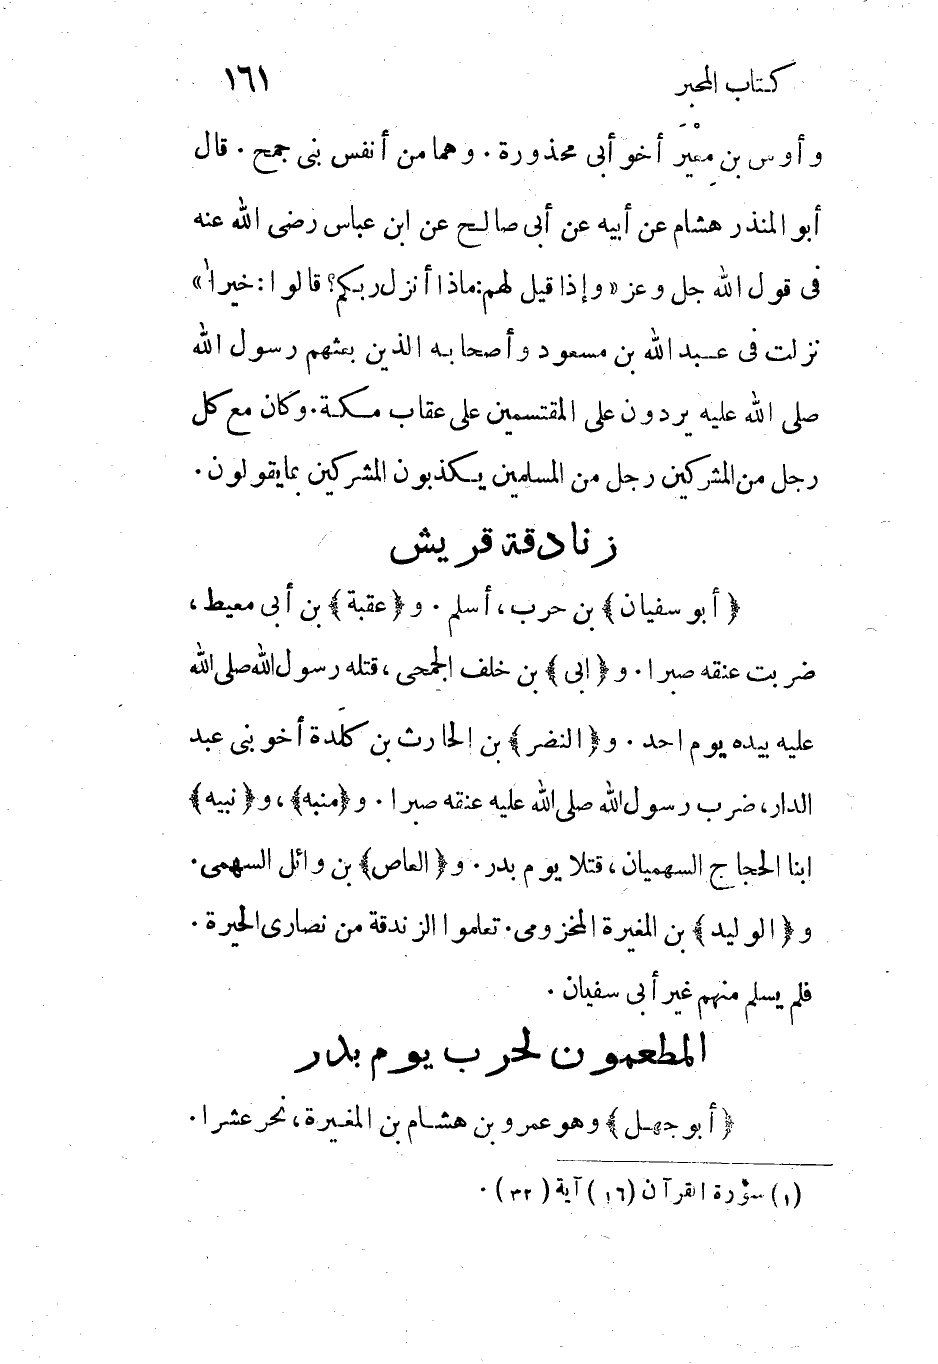 كتاب المحبر ١٦١
وأوس بن مِعْيَر أخو أبى محذورة. وهما من أنفس بنى جمح. قال
أبو المنذر هشام عن أبيه عن أبى صالح عن ابن عباس رضى الله عنه
فى قول الله جل وعز «وإذا قيل لهم: ماذا أنزل ربكم؟ قالوا: خيرا١»
نزلت فى عبد الله بن مسعود وأصحابه الذين بعثهم رسول الله
صلى الله عليه يردون على المقتسمين على عقاب مكة. وكان مع كل
رجل من المشركين رجل من المسلمين يكذبون المشركين بما يقولون.
زنادقة قريش
﴿أبو سفيان﴾ بن حرب، أسلم. و﴿عقبة﴾ بن أبى معيط،
ضربت عنقه صبرا. و﴿ابى﴾ بن خلف الجمحى، قتله رسول الله صلى الله
عليه بيده يوم احد. و﴿النضر﴾ بن الحارث بن كَلدة أخو بنى عبد
الدار، ضرب رسول الله صلى الله عليه عنقه صبرا. و﴿منبه﴾، و﴿نبيه﴾
ابنا الحجاج السهميان، قتلا يوم بدر. و﴿العاص﴾ بن وائل السهمى.
و﴿الوليد﴾ بن المغيرة المخزومى. تعلموا الزندقة من نصارى الحيرة.
فلم يسلم منهم غير أبى سفيان.
المطعمون لحرب يوم بدر
﴿أبو جهل﴾ وهو عمرو بن هشام بن المغيرة، نحر عشرا.
(١) سورة القرآن (١٦) آية (٣٢).